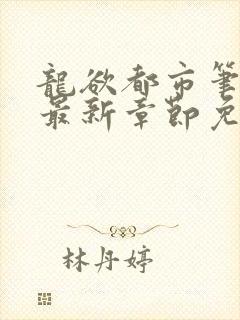 龍欲都市筆
最新章節免
林丹婷